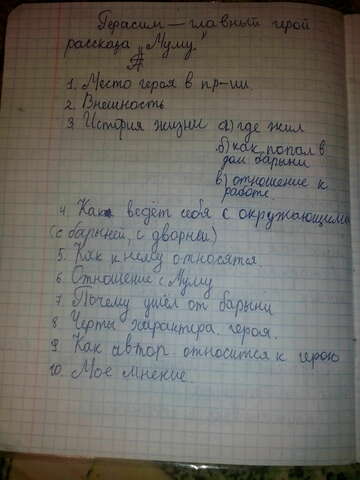 Герасим — главный герой
рассказа "Муму"
П
1. Место героя в пр-ии.
2. Внешность
3. История жизни а) где жил
б) как попал в
дом барыни
в) отношение к
работе.
4. Как ведёт себя с окружающими
(с барыней, с дворней)
5. Как к нему относятся.
6. Отношение с Муму
7. Почему ушёл от барыни
8. Черты характера героя.
9. Как автор относится к герою
10. Моё мнение.